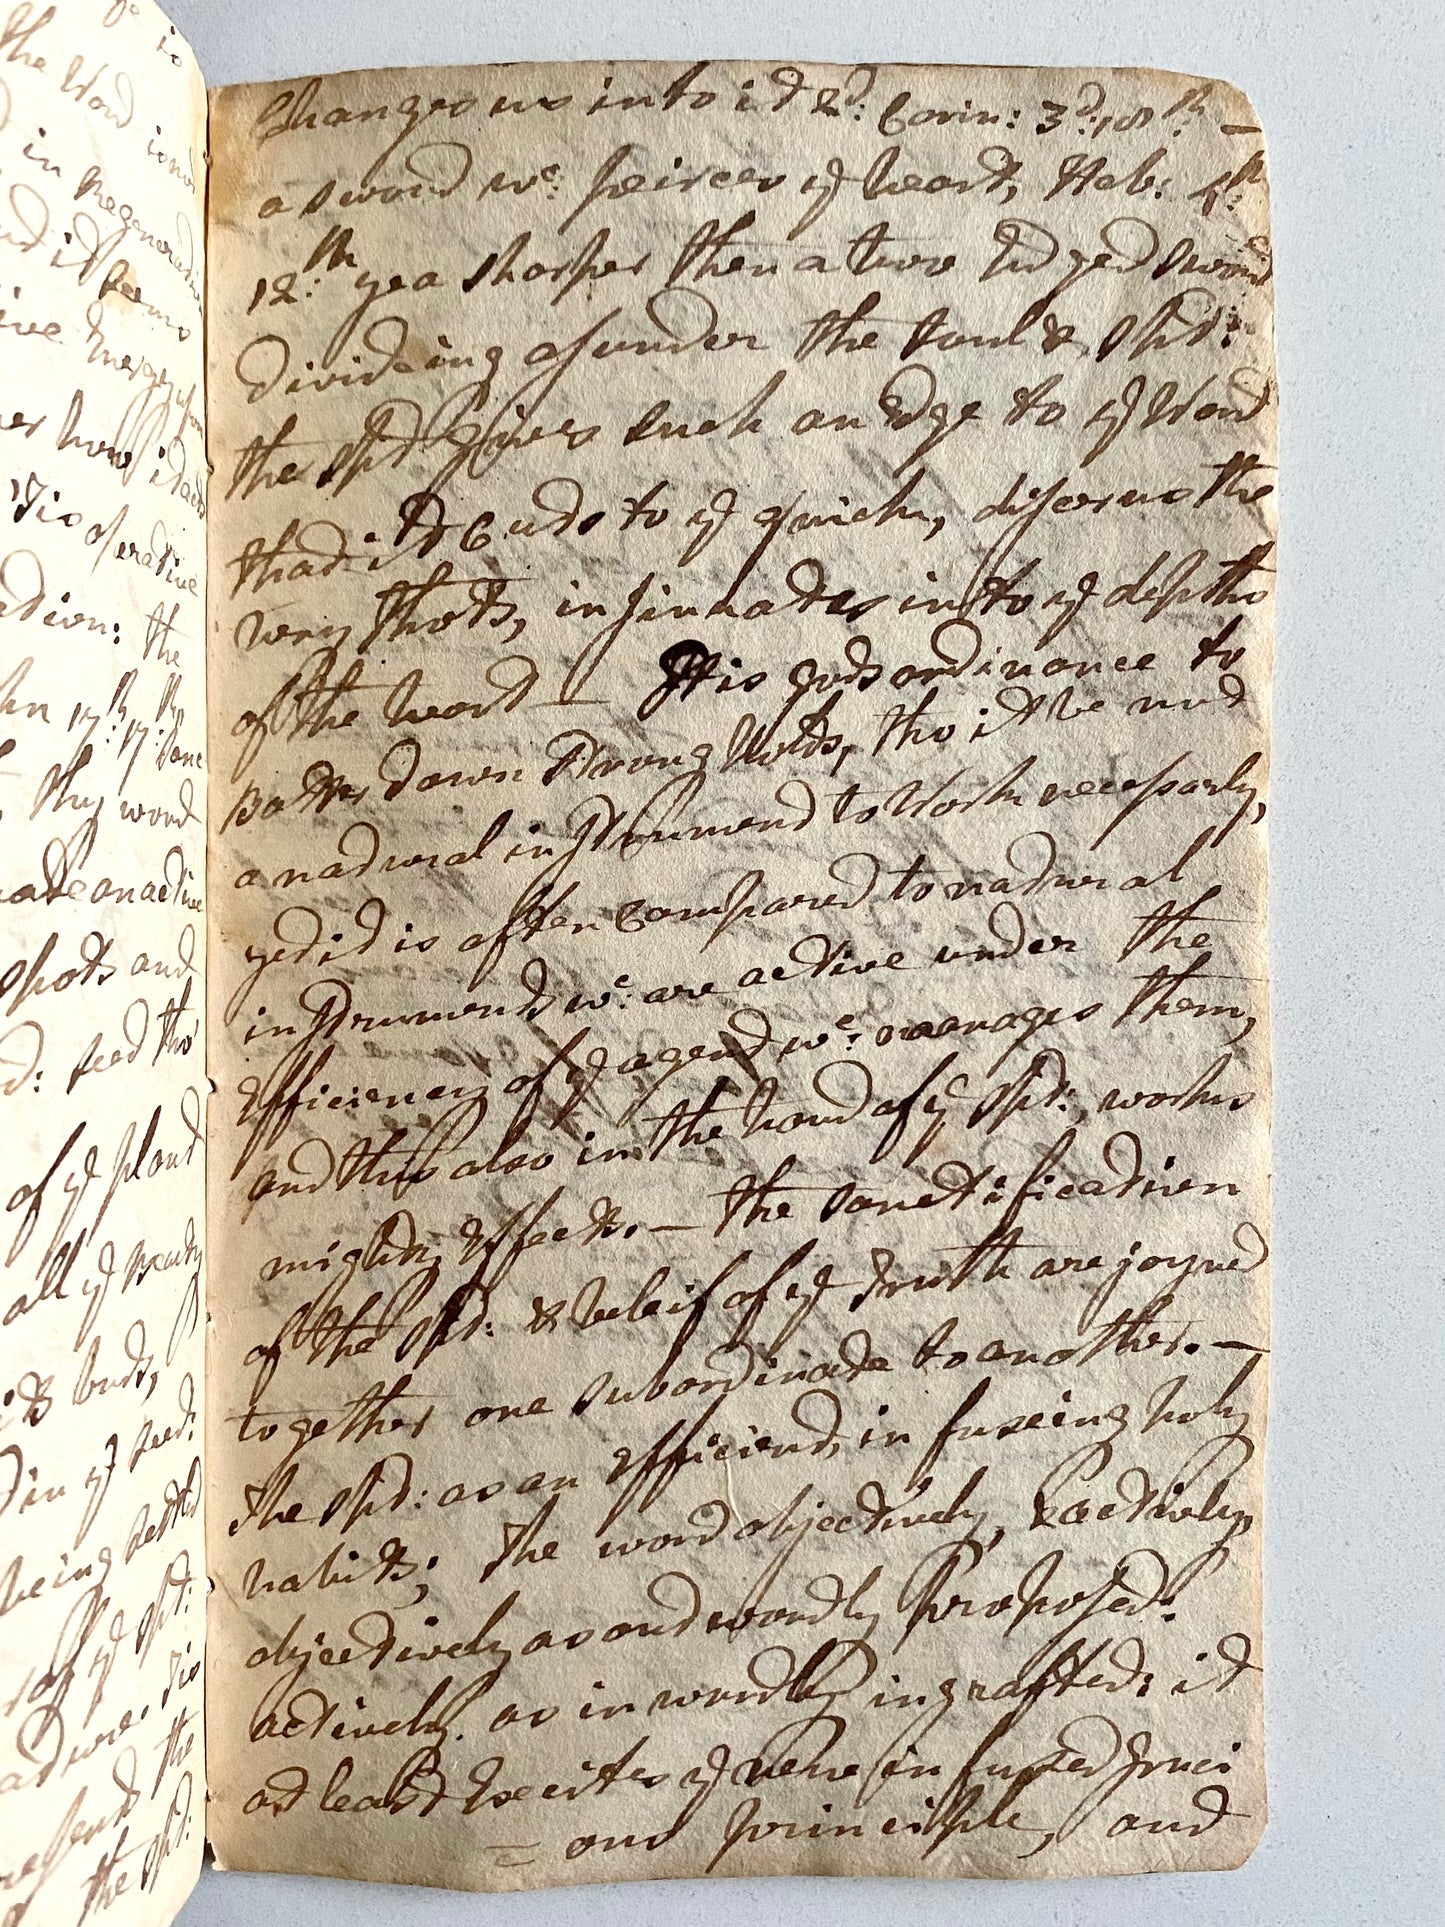 is
the Word
in Regeneration
it seems
mercy upon
how it acts
'Tis operative
the
17th: 17: Sanc
thy word
an active
spots and
: seed tho
of ye plant
all ye Beauty
its buds,
in ye seed:
being settled
of ye Spt:
'Tis
the
the Spt:
Changes us into it 2d: Corin: 3d: 18th: —
a sword wc: peirces ye heart, Heb: 4th:
12:th yea sharper then a two Edged sword
divideing asunder the soul & Spt:
the Spt Gives such an Edge to ye Word
that it Cuts to ye quick, discerns the
very thots, insinuates into ye depths
of the heart — It is gods ordinance to
Batter down Strong Holds, tho it be not
a natural instrument to Work necessarly,
yet it is often Compared to natural
instruments wc: are active under the
Efficiency of ye agent wc: manages them,
and this also in the hand of ye Spt:, works
mighty Effects. — The Sanctification
of the Spt: & beleif of ye truth are joyned
together one subordinate to another. —
The Spt: as an Efficient, in fuseing holy
habits; The word objectively, & actively,
objectively as outwardly Proposed:
actively as inwardly ingrafted: it
at least Excites ye new infused Graci
= ous principle, and